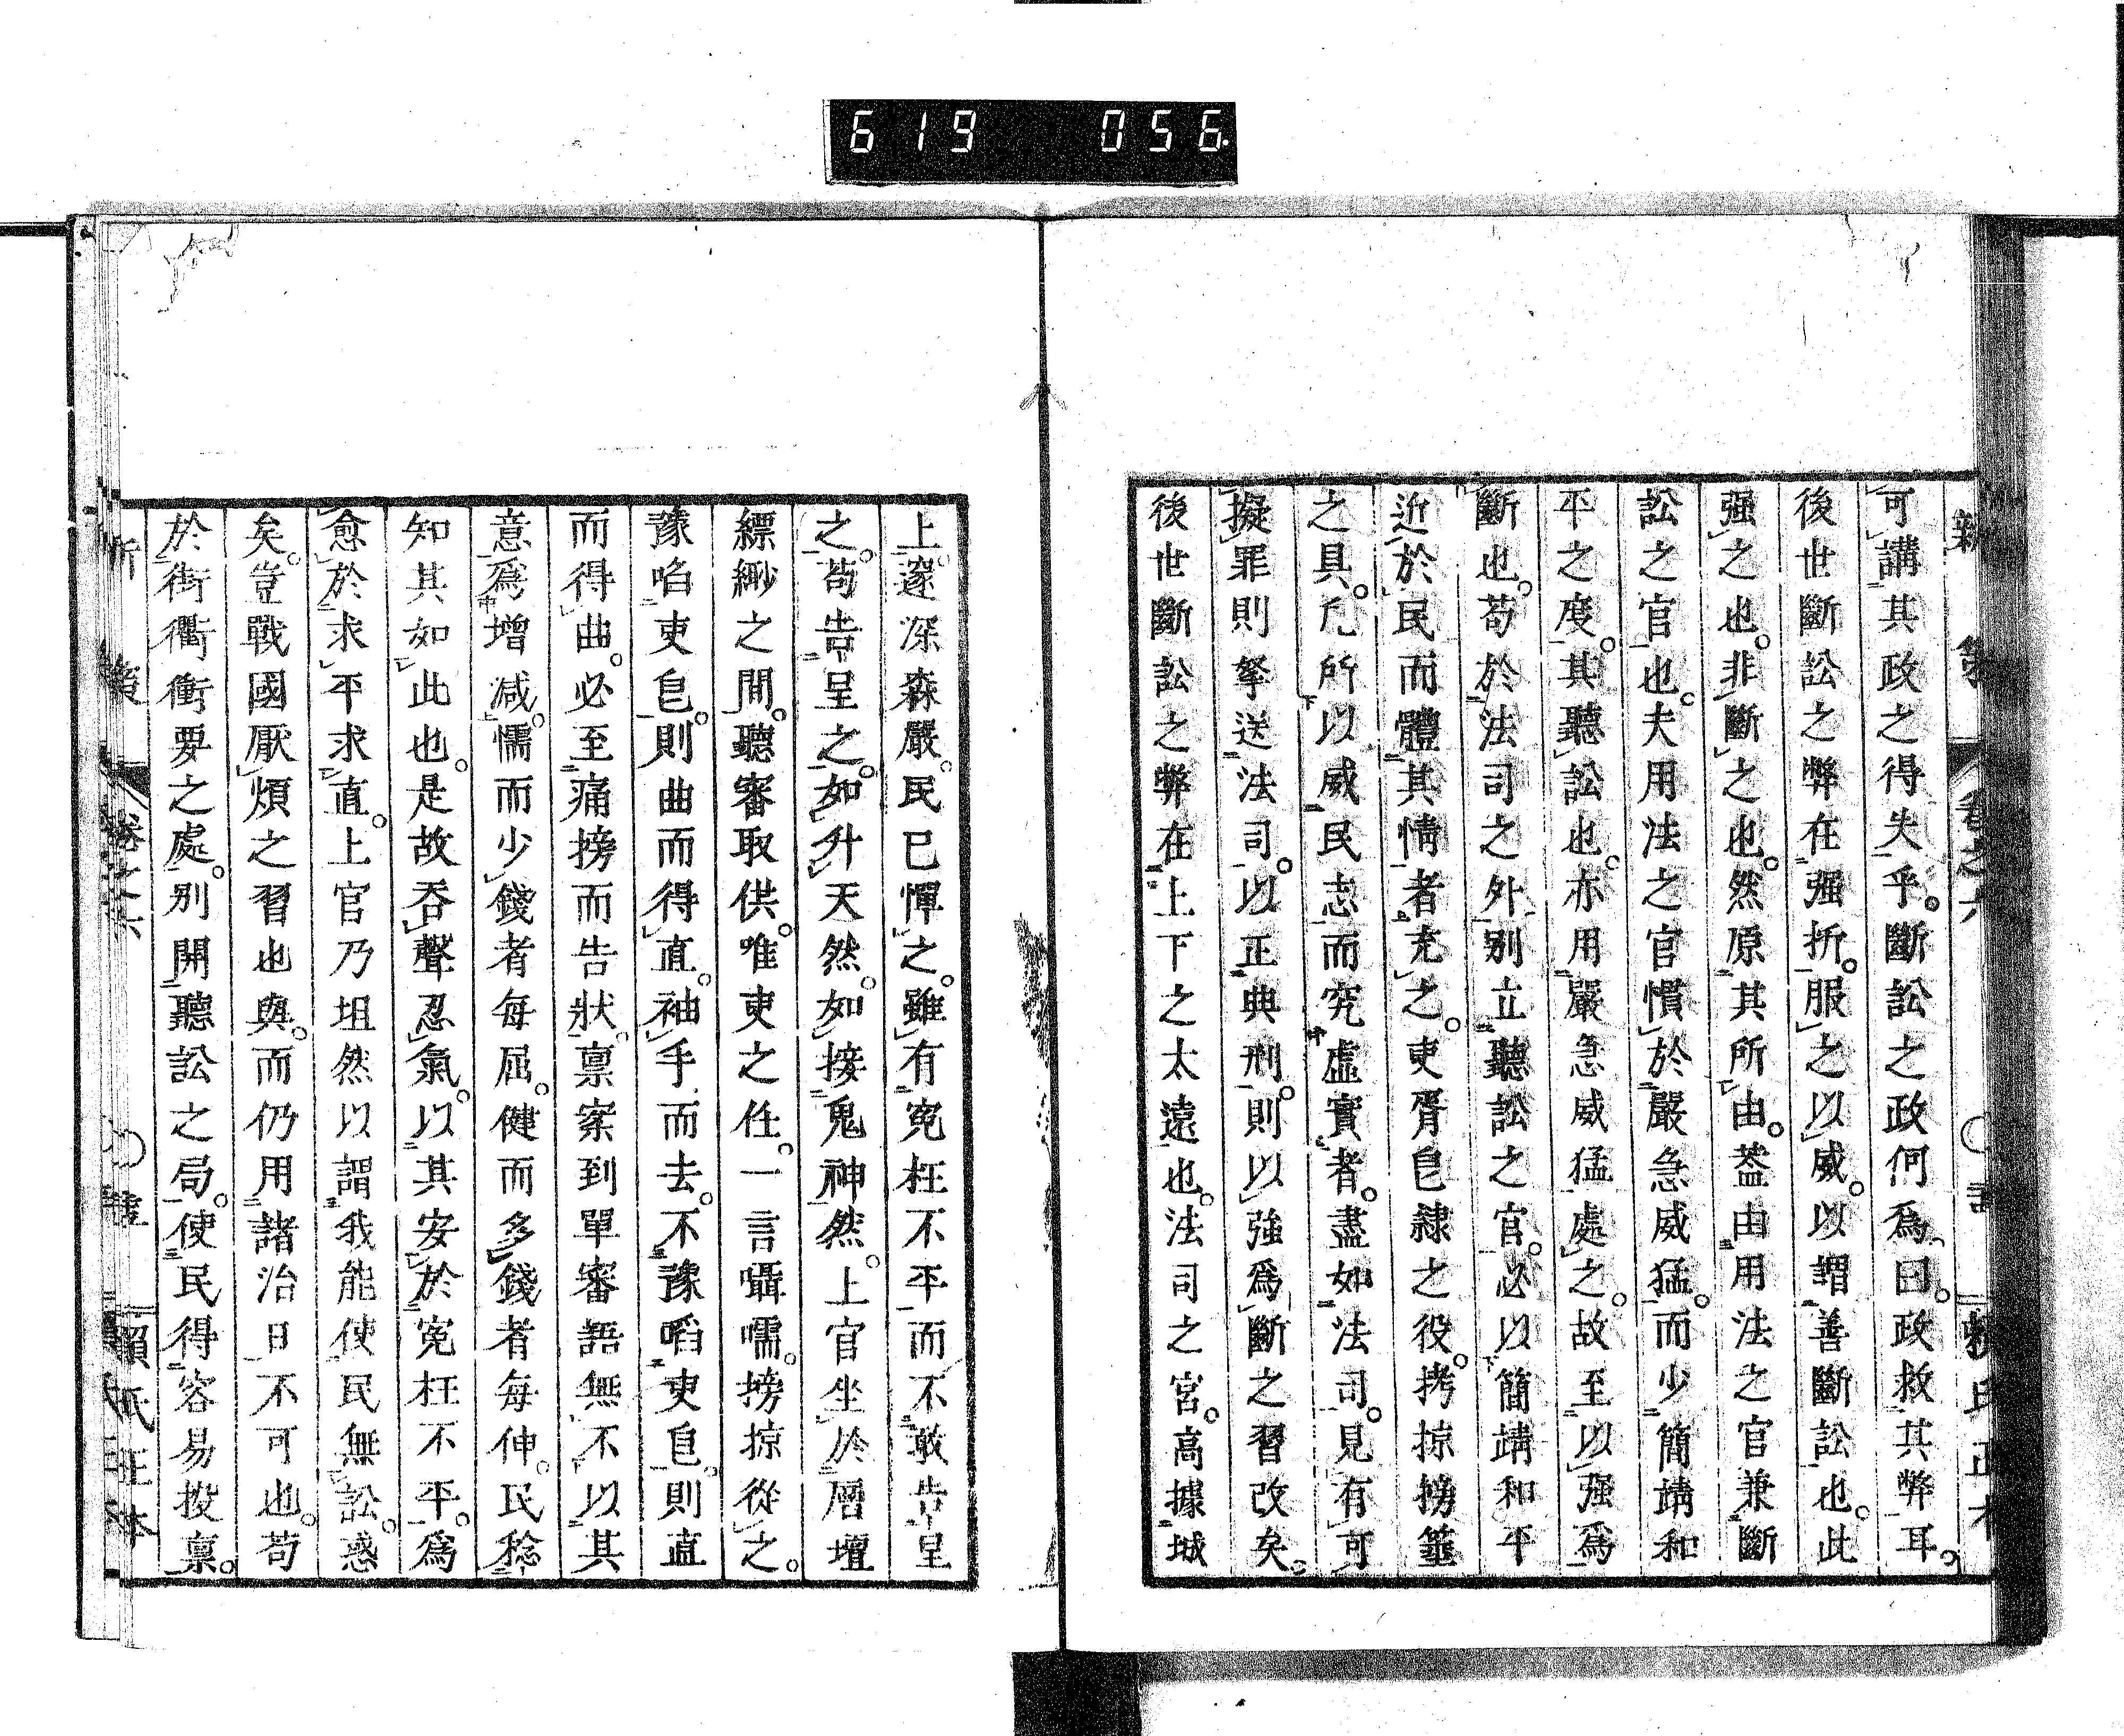 619 056
可講其政之得失乎。斷訟之政何爲。曰。政救其弊耳。
後世斷訟之弊在强折。服之以威。以謂善斷訟也。此
强之也。非斷之也。然原其所由。葢由用法之官兼斷
訟之官也。夫用法之官慣於嚴急威猛。而少簡靖和
平之度。其聽訟也。亦用嚴急威猛處之。故至以强爲
斷也。苟於法司之外。別立聽訟之官。必以簡靖和平
近於民而體其情者充之。吏胥皀隸之役。拷掠搒箠
之具。凡所以威民志而究虛實者。盡如法司。見有可
擬罪則拏送法司。以正典刑。則以强爲斷之習改矣。
後世斷訟之弊在上下之太遠也。法司之宮。高據城
上。邃深森嚴。民已憚之。雖有寃枉不平而不敢告呈
之。苟告呈之。如升天然。如接鬼神然。上官坐於層壇
縹緲之間。聽審取供。唯吏之任。一言囁嚅。搒掠從之。
豫啗吏皀。則曲而得直。袖手而去。不豫啗吏皀。則直
而得曲。必至痛搒而告狀。禀案到單審語無不以其
意爲增減。懦而少錢者每屈。健而多錢者每伸。民稔
知其如此也。是故吞聲忍氣。以其安於寃枉不平。爲
愈於求平求直。上官乃坦然以謂我能使民無訟。惑
矣。豈戰國厭煩之習也與。而仍用諸治日不可也。苟
於街衢衝要之處。別開聽訟之局。使民得容易投禀。
新策 卷之六 賴氏正本